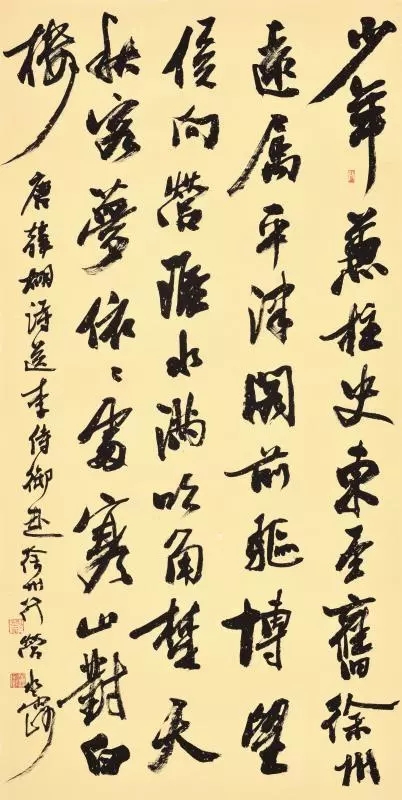 少年兼柱史東至舊徐州
遠属平津閣前驅博望
侯向營淮水滿吹角楚天
秋客夢依〻處寒山對白
樓
唐韓翃詩送李侍御赴徐州行營